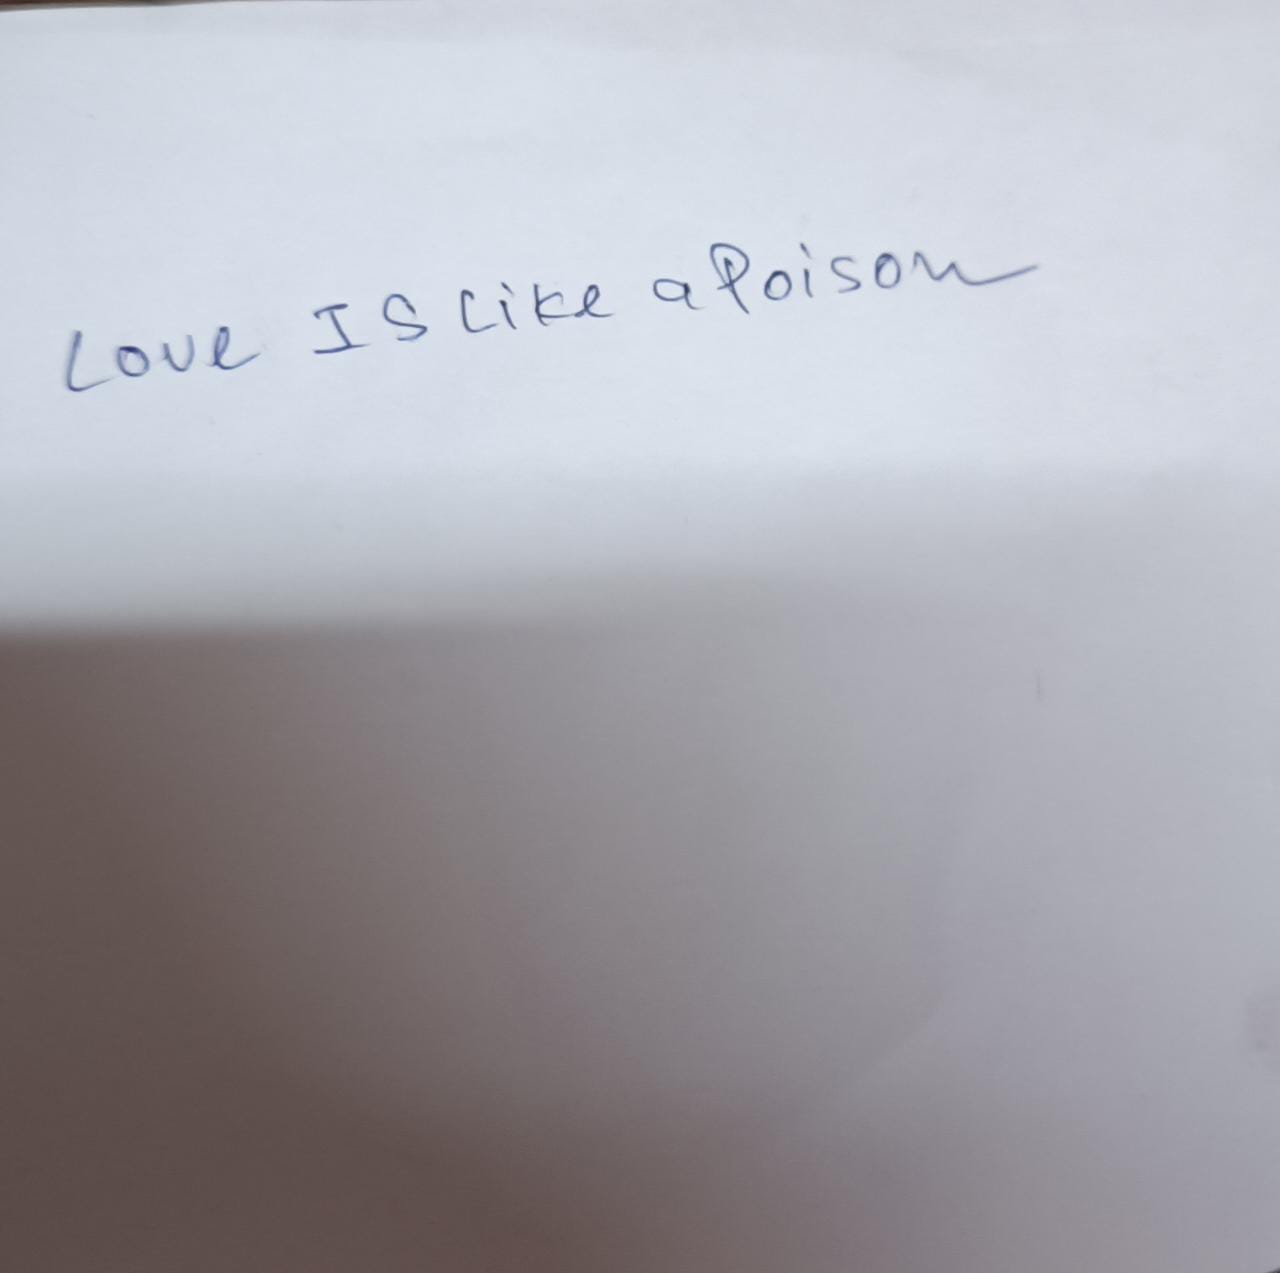 Love IS Like a Poison